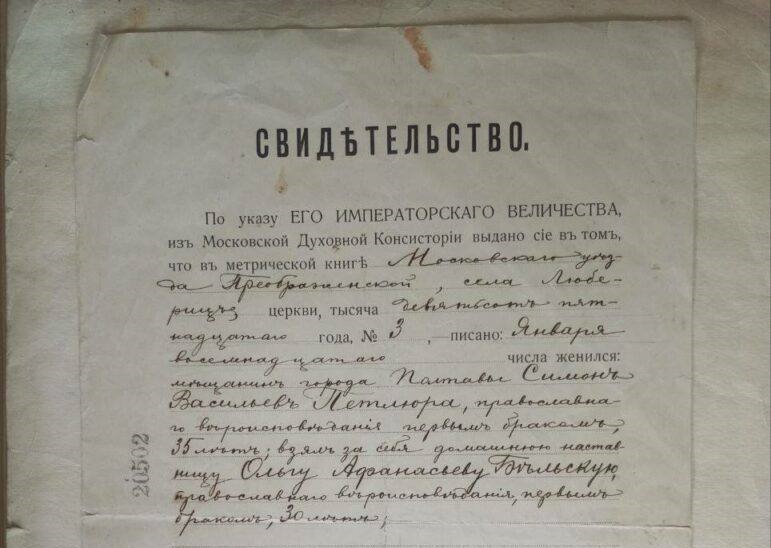 СВИДѢТЕЛЬСТВО.
По указу ЕГО ИМПЕРАТОРСКАГО ВЕЛИЧЕСТВА,
изъ Московской Духовной Консисторіи выдано сіе въ томъ,
что въ метрической книгѣ Московскаго уѣз-
да Преображенской, села Любе-
рицъ церкви, тысяча девятьсотъ пят-
надцатаго года, № 3, —писано: Января
восемнадцатаго числа женился:
мѣщанинъ города Полтавы Симонъ
Васильевъ Петлюра, православна-
го вѣроисповѣданія первымъ бракомъ,
35 лѣтъ; взялъ за себя домашнюю настав-
ницу Ольгу Афанасьеву Бѣльскую,
православнаго вѣроисповѣданія, первымъ
бракомъ, 30 лѣтъ;
20502